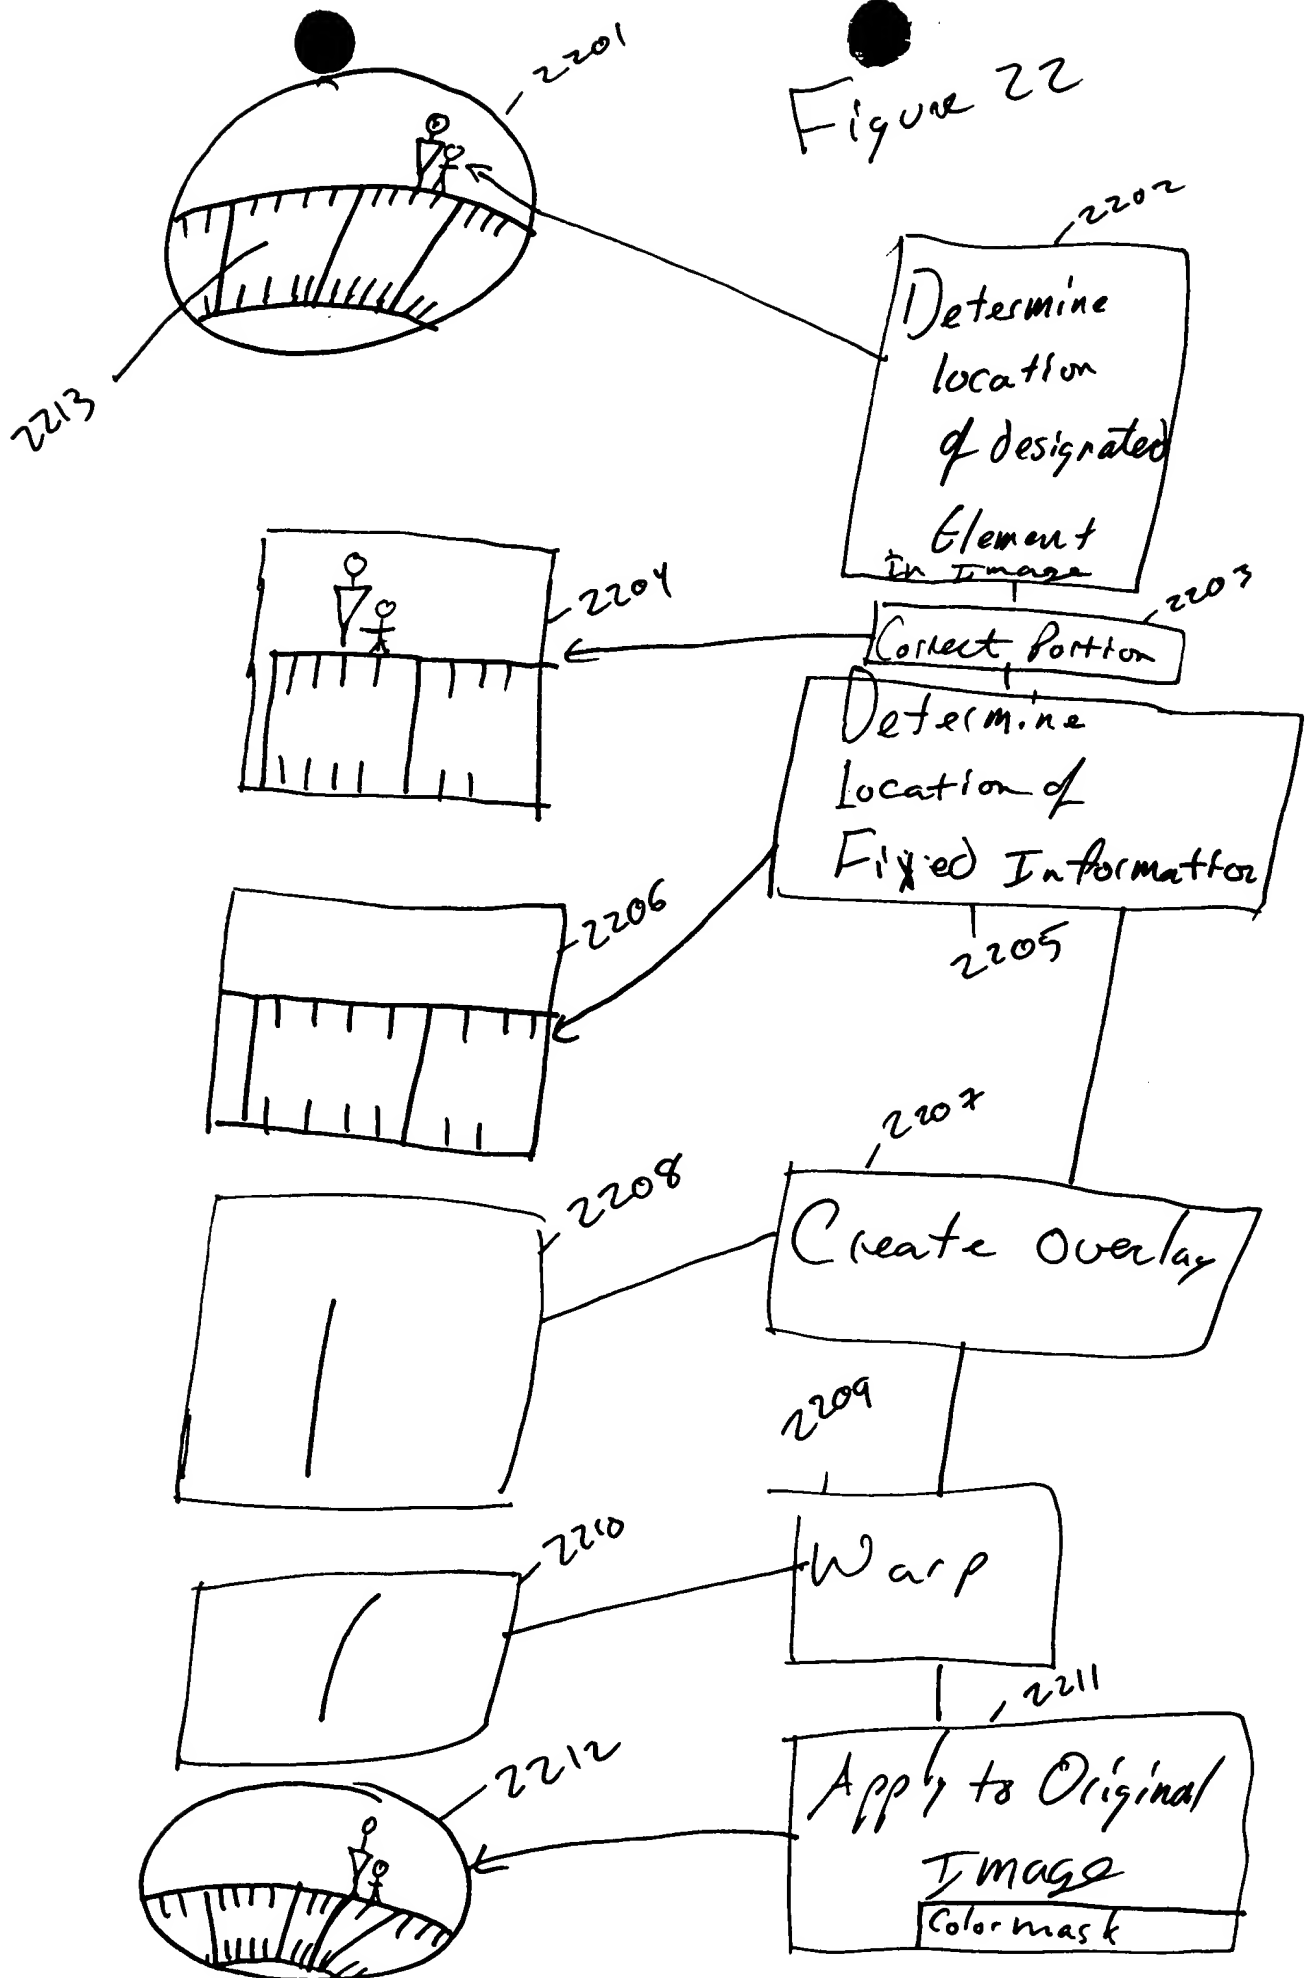 2201
Figure 22
2202
Determine
location
of designated
Element
In Image
2213
2203
Correct Portion
2204
Determine
Location of
Fixed Information
2205
2206
2207
Create Overlay
2208
2209
Warp
2210
2211
Apply to Original
Image
Colormask
2212